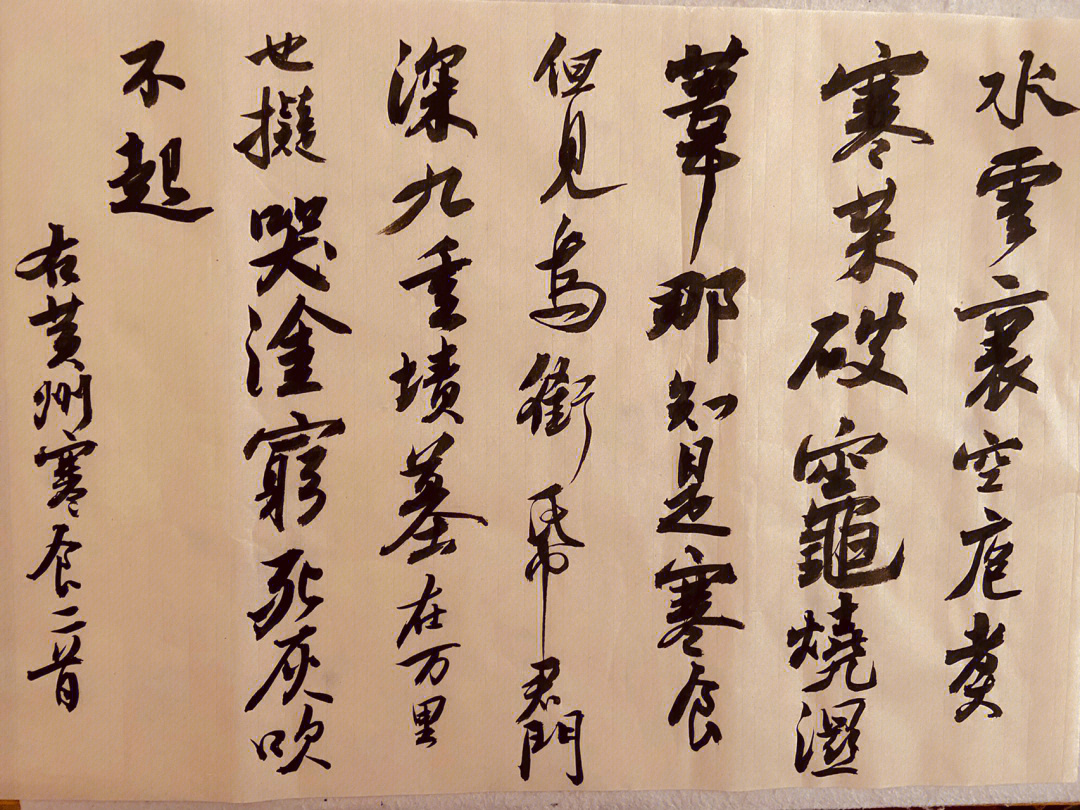 水雲裏空庖煮
寒菜破竈燒濕
葦那知是寒食
但見烏銜帋君門
深九重墳墓在万里
也擬哭塗窮死灰吹
不起
右黄州寒食二首